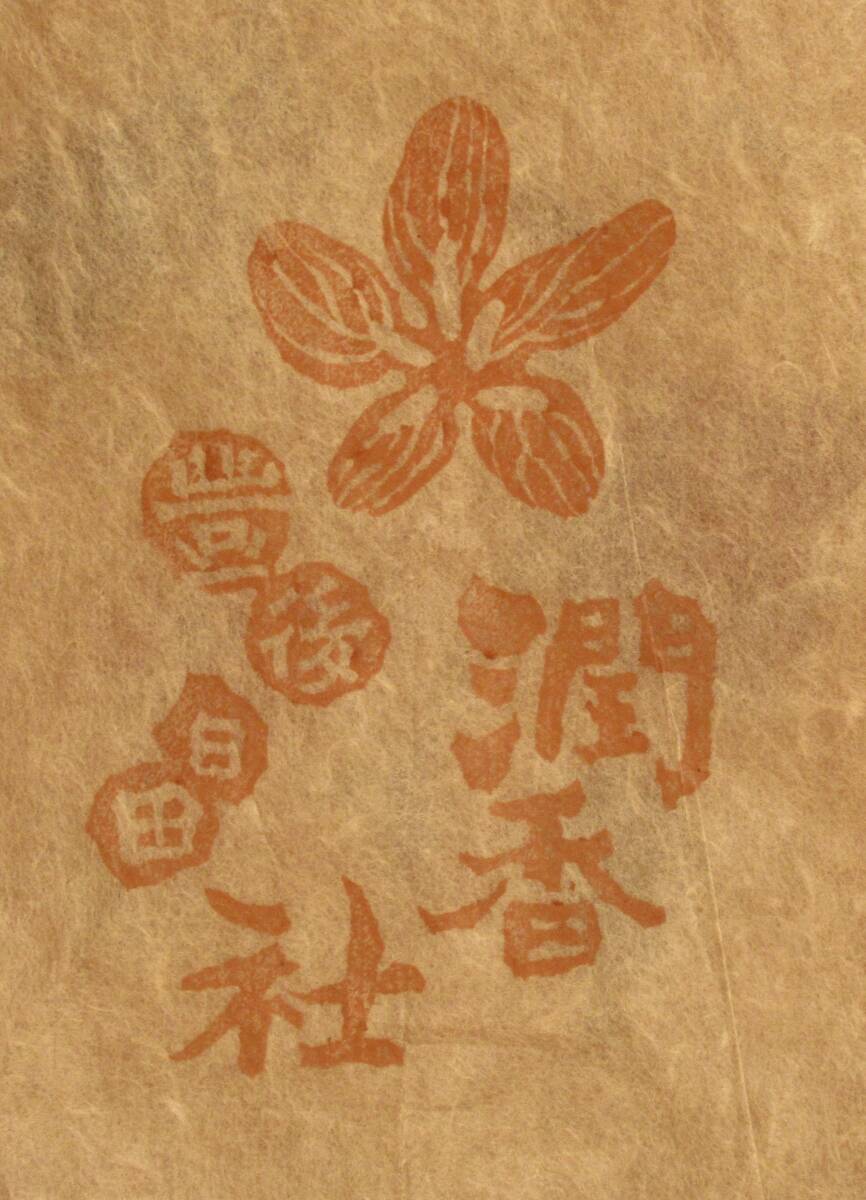 豊後
日田
潤香
社